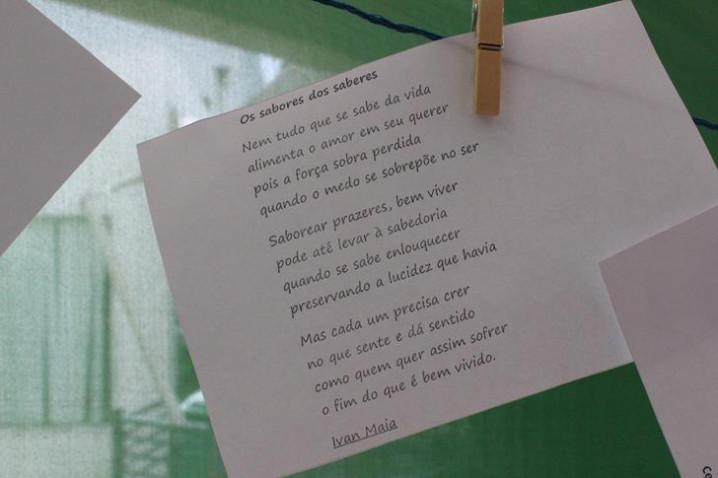 Os sabores dos saberes
Nem tudo que se sabe da vida
alimenta o amor em seu querer
pois a força sobra perdida
quando o medo se sobrepõe no ser
Saborear prazeres, bem viver
pode até levar à sabedoria
quando se sabe enlouquecer
preservando a lucidez que havia
Mas cada um precisa crer
no que sente e dá sentido
como quem quer assim sofrer
o fim do que é bem vivido.
Ivan Maia